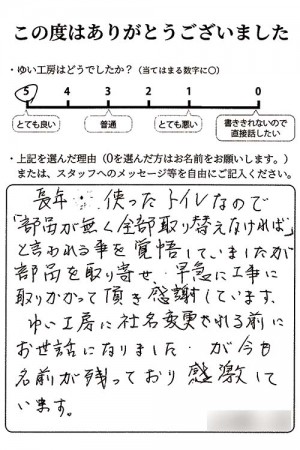 この度はありがとうございました
・ゆい工房はどうでしたか？（当てはまる数字に○）
5 4 3 2 1 0
とても良い 普通 とても悪い 書ききれないので直接話したい
・上記を選んだ理由（0を選んだ方はお名前をお願いします。）
または、スタッフへのメッセージ等を自由にご記入ください。
長年 使ったトイレなので
「部品が無く全部取り替えなければ」
と言われる事を覚悟していましたが
部品を取り寄せ、早急に工事に
取りかかって頂き感謝しています、
ゆい工房に社名変更される前に
お世話になりました が今も
名前が残っており感激して
います。